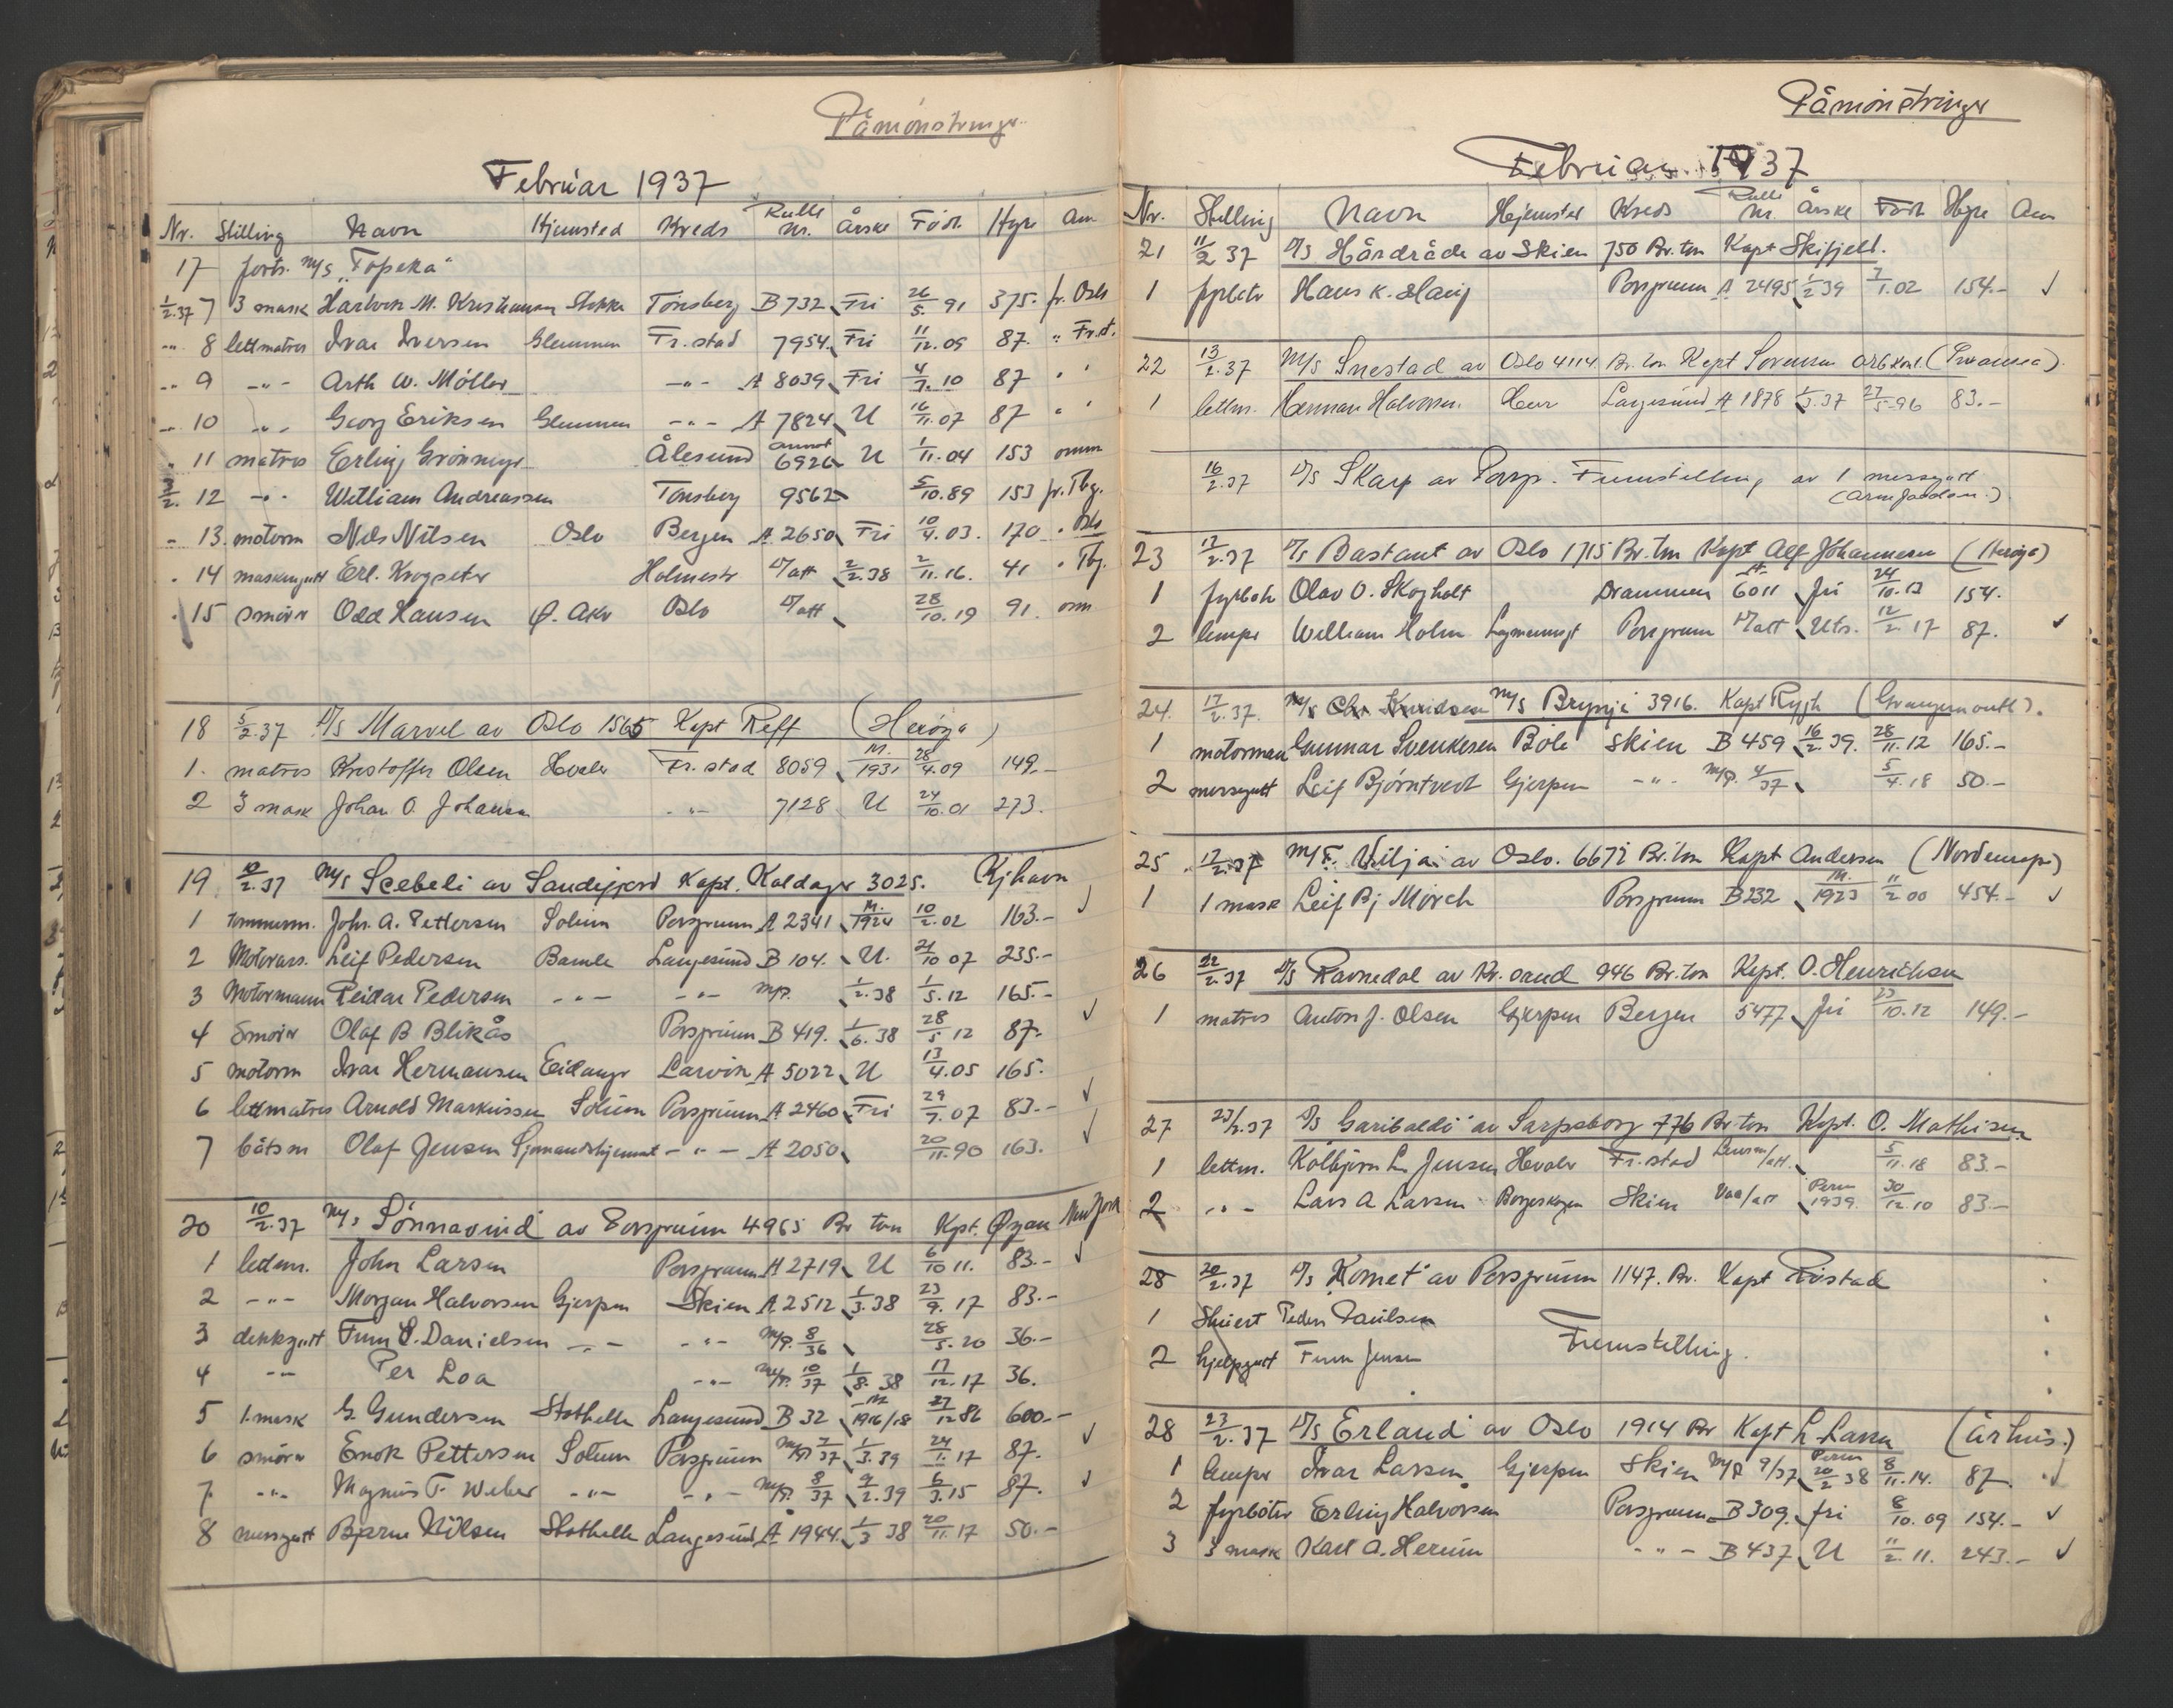 Påmönstringer
Februar 1937
Nr. Stilling Navn Hjemsted Kreds Rulle Nr. Årskl Född Hyre Am
17 forts. M/S "Topeka"
1/2.37 7 3 mask Kristiansen Stokke Tönsberg B 732 Fri 26/5. 91 375.- fr. Oslo
-"- 8 lettmatros Ivar Iversen Glemmen Fr.stad 7954 Fri 11/12.09 87. " Fr.st.
-"- 9 -"- Arth W. Möller -"- A 8039 Fri 4/7. 10 87 " "
-"- 10 -"- Georg Eriksen Glemmen -"- A 7824 U 16/11.07 87 " "
" 11 matros Erling Ålesund annot 6926 U 1/11.04 153 omm
3/2. 12 -"- William Andreassen Tönsberg 9562 5/10.89 153 fr. Tbg.
- 13. motorm Nils Nilsen Oslo Bergen A 2650 Fri 10/4.03. 170 " Oslo
" 14 maskingutt Erl. Krogseter Holmestr D/att 2/2.38 2/11.16. 41 " Tbg.
" 15 smörer Odd Hansen Ø. Aker Oslo D/att 28/10.19 91. omm
18 5/2.37 D/S Marvel av Oslo 1565 Kapt Reff (Heröya)
1. matros Kristoffer Olsen Hvaler Fr.stad 8059 M. 1931 28/4.09 149.-
2 3 mask Johan O. Johansen -"- 7128 U 24/10.01 273.
19 10/2.37 M/S Scebeli av Sandefjord Kapt. Kaldager 3025. Kjhavn
1 tömmerm. Joh. A. Pettersen Solum Porsgrunn A 2341 M. 1924 10/2.02 163.- ✓
2 Motorass. Leif Pedersen Bamle Langesund B 104. U. 21/10 07 235.-
3 Motormann Reidar Pedersen -"- -"- M/P. 1/2.38 1/5.12 165.-
4 Smörer Olaf B Blikås Porsgrunn B 419. 1/6.38 28/5 12 87.- ✓
5 motorm Ivar Hermansen Eidanger Larvik A 5022 U 13/4.05 165.-
6 lettmatros Arnold Markussen Solum Porsgrunn A 2460 Fri 29/7.07 83.- ✓
7 båtsm Olaf Jensen Sjömandshjemmet -"- A 2050 20/11.90 163. ✓
20 10/2.37 M/S "Sönnavind" av Porsgrunn 4965 Br ton Kpt. Øgan New York
1 lettm. John Larsen Porsgrunn A 2719 U 6/10 11. 83.- ✓
2 -"- Morgan Halvorsen Gjerpen Skien A. 2512 1/3.38 23/9. 17 83.-
3 dekkgutt Finn S. Danielsen -"- -"- M/P. 8/36 28/5.20 36.-
4 -"- Per Loa -"- M/P. 10/37 1/8. 38 17/12.17 36.
5 1. mask G. Gundersen Stathelle Langesund B 32 M 1916/18 27/12 86 600.-
6 smörer Enok Pettersen Solum Porsgrunn M/P 7/37 1/3.39 24/1.17 87. ✓
7. -"- Magnus F. Weber -"- -"- M/P. 8/37 9/2.39 6/3.15 87. ✓
8 messgutt Bjarne Nilsen Stathelle Langesund A 1944 1/3 38 20/11.17 50.-
Påmönstringer
Februar 1937
Nr. Stilling Navn Hjemsted Kreds Rulle Nr. Årskl Född Hyre Am
21 11/2 37 D/S Hårdråde av Skien 750 Br.ton Kapt Skifjell.
1 fyrböter Hans K. Haug Porsgrunn A 2495 1/2 39 7/1.02 154.- ✓
22 13/2.37 M/S Snestad av Oslo 4114 Br.ton Kapt Sörensen (Swansea)
1 lettm. Herman Halvorsen. Heer Langesund A 1878 1/3.37 27/5.96 83.-
16/2.37 D/S Skarp av Porsgr. Fremstilling av 1 messgutt
23 17/2.37 D/S Bastant av Oslo 1715 Br.ton Kapt Alf Johannesen (Heröya)
1 fyrböter Olav O. Skogholt Drammen A 6011 fri 24/10.13 154.
2 lemper William Holm Porsgrunn D/att Uts. 12/2. 17 87. ✓
24. 17/2.37. M/S Chr Knudsen M/S Brynje 3916. Kapt Rygh (Grangemouth).
1 motorman Gunnar Svenkesen Böle Skien B 459 16/2.39. 28/11.12 165.-
2 messgutt Leif Björntvedt Gjerpen -"- M/P. 4/37 5/4.18 50.-
25 17/2.37 M/T. "Vilja" av Oslo. 6672 Br.ton Kapt Andersen (Nordeuropa)
1 1 mask Leif Bj Mörch Porsgrunn B 232 M. 1923 11/2.00 454.- ✓
26 22/2.37 D/S Ravnedal av Kr.sand 946 Br.ton Kapt. O. Henrichsen
1 matros Anton J. Olsen Gjerpen Bergen 5477 fri 23/10.12 149.-
27 23/2.37 D/S "Garibaldi" av Sarpsborg 776 Br ton Kapt. O. Mathisen
1 lettm. Kolbjörn L. Jensen Hvaler Fr.stad 5/11.18 83.-
2 -"- Lars A Larsen Borgeskogen Skien Vaa/att Perm 1939 30/12.10 83.-
28 20/2.37 D/S "Komet" av Porsgrunn 1147. Br. Kapt Röstad
1 Stuert Peder Paulsen
2 hjelpgutt Finn Jensen Fremstilling.
28 23/2.37 D/S "Erland" av Oslo 1914 Br Kapt L. Larsen (Århus.)
1 lemper Ivar Larsen Gjerpen Skien M/P 9/37 Perm 20/2 38 8/11.14. 87. ✓
2 fyrböter Erling Halvorsen Porsgrunn B 309. fri 8/10.09 154.- ✓
3 3 mask Karl A. Herum -"- B 437 U 11/2.11. 243.- ✓